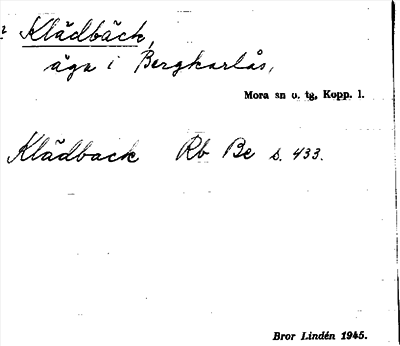 Klädbäck,
äga i Bergkarlås,
Mora sn o. tg, Kopp. l.
Klädback Rb Be s. 433.
Bror Lindén 1945.